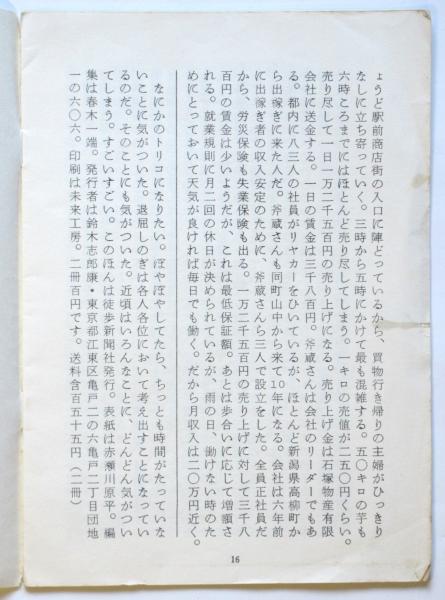 ょうど駅前商店街の入口に陣どっているから、買物行き帰りの主婦がひっきり
なしに立ち寄っていく。三時から五時にかけて最も混雑する。五〇キロの芋も
六時ころまでにはほとんど売り尽してしまう。一キロの売値が二五〇円くらい。
売り尽して一日一万二千五百円の売り上げになる。売り上げ金は石塚物産有限
会社に送金する。一日の賃金は三千八百円。斧蔵さんは会社のリーダーでもあ
る。都内に八三人の社員がリヤカーをひいているが、ほとんど新潟県高柳町か
ら出稼ぎに来た人だ。斧蔵さんも同町山中から来て10年になる。会社は六年前
に出稼ぎ者の収入安定のために、斧蔵さんら三人で設立をした。全員正社員だ
から、労災保険も失業保険も出る。一万二千五百円の売り上げに対して三千八
百円の賃金は少いようだが、これは最低保証額。あとは歩合いに応じて増額さ
れる。就業規則に月二回の休日が決められているが、雨の日、働けない時のた
めにとっておいて天気が良ければ毎日でも働く。だから月収入は二〇万円近く。
なにかのトリコになりたい。ぼやぼやしてたら、ちっとも時間がたっていな
いことに気がついた。退屈しのぎは各人各位において考え出すことになってい
るのだ。そのことにも気がついた。近頃はいろんなことに、どんどん気がつい
てしまう。すごいすごい。このほんは徒歩新聞社発行。表紙は赤瀬川原平。編
集は春木一端。発行者は鈴木志郎康・東京都江東区亀戸二の六亀戸二丁目団地
一の六〇六。印刷は未来工房。二冊百円です。送料含百五十五円（二冊）
16